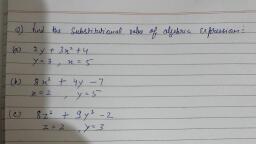 Q) Find the substitutional value of algebric expression:
(a) 2y + 3x² + 4
y = 3 , x = 5
(b) 8x² + 4y - 7
x = 2 , y = 5
(c) 8x² + 9y² - 2
x = 2 , y = 3